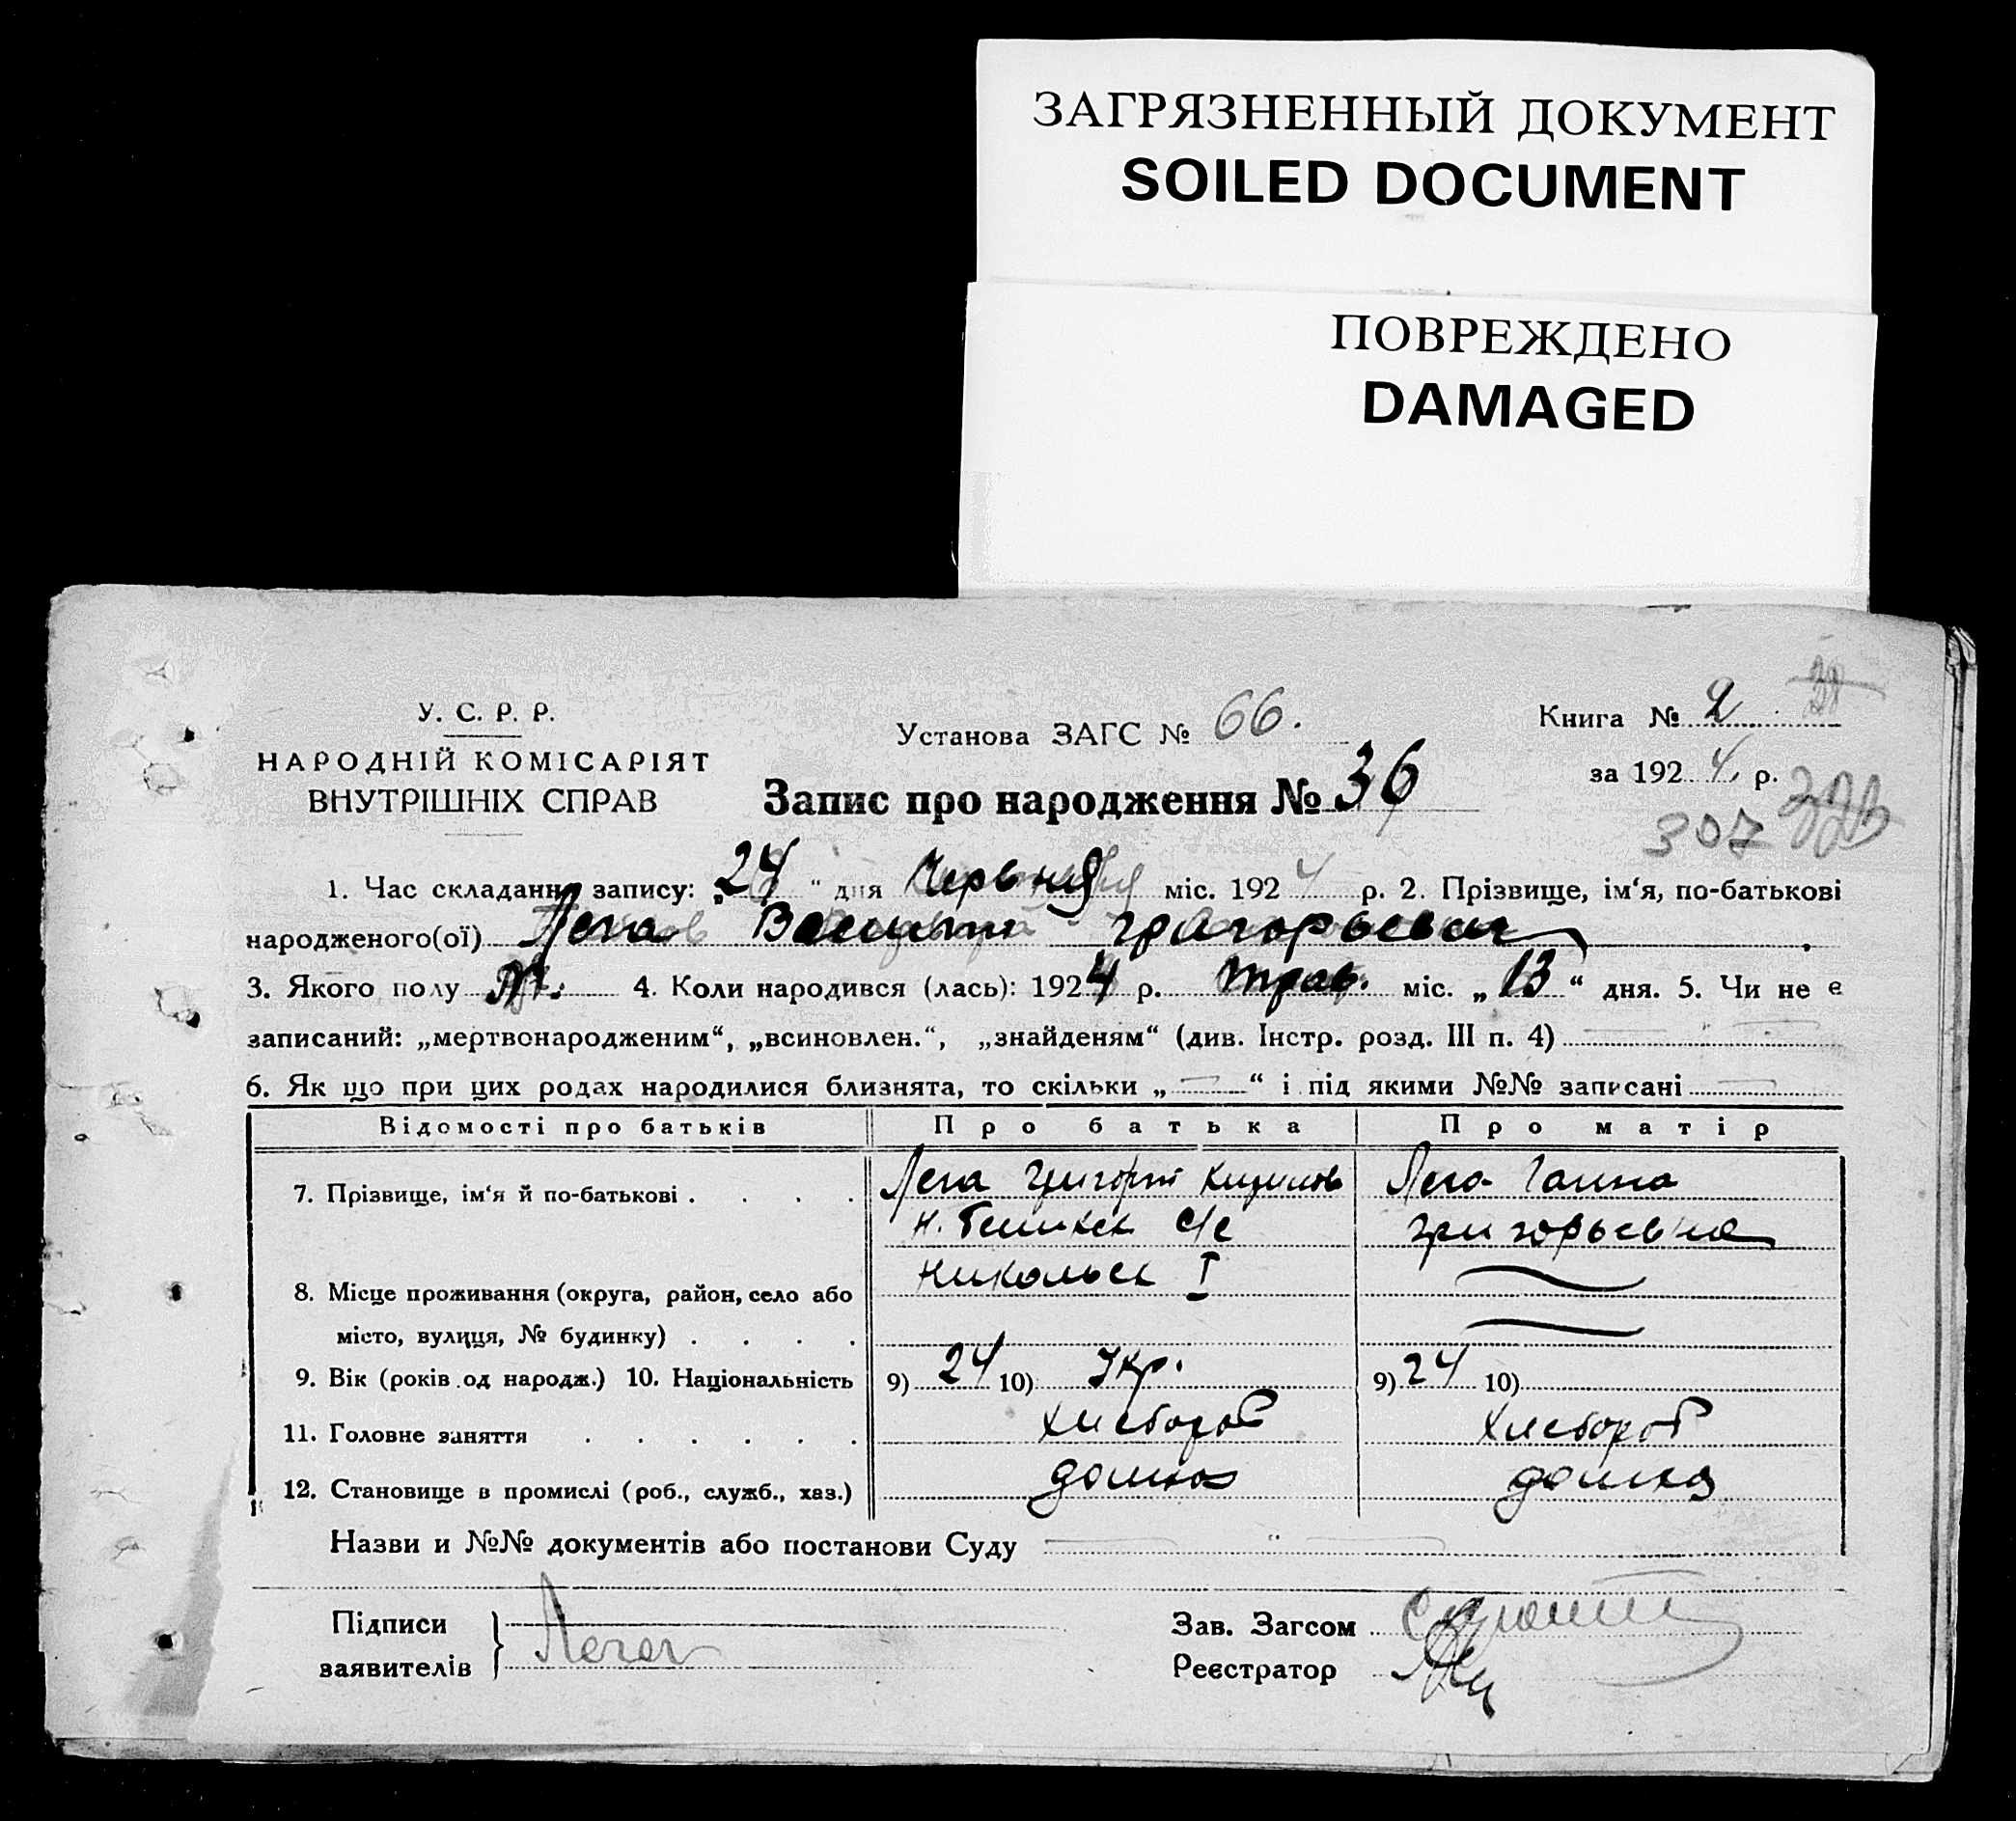 ЗАГРЯЗНЕННЫЙ ДОКУМЕНТ
SOILED DOCUMENT
ПОВРЕЖДЕНО
DAMAGED
У. С. Р. Р.
НАРОДНІЙ КОМІСАРІЯТ
ВНУТРІШНІХ СПРАВ
Установа ЗАГС № 66.
Книга № 2
за 1924 р.
Запис про народження № 36
307
1. Час складання запису: „24“ дня Червня міс. 1924 р. 2. Прізвище, ім‘я, по-батькові
народженого(ої) Лега Григорьевич
3. Якого полу 4. Коли народився (лась): 1924 р. трав. міс. „13“ дня. 5. Чи не є
записаний: „мертвонародженим“, „всиновлен.“, „знайденям“ (див. Інстр. розд. III п. 4)
6. Як що при цих родах народилися близнята, то скільки „—“ і під якими №№ записані —
Відомості про батьків Про батька Про матір
7. Прізвище, ім‘я й по-батькові Лега Григорій Лега Ганна
с/с Григорьевна
8. Місце проживання (округа, район, село або Никольск I
місто, вулиця, № будинку)
9. Вік (років од народж.) 10. Національність 9) 24 10) Укр. 9) 24 10)
11. Головне заняття Хлебороб Хлебороб
12. Становище в промислі (роб., служб., хаз.)
Назви и №№ документів або постанови Суду
Підписи
заявителів Лега
Зав. Загсом
Реєстратор